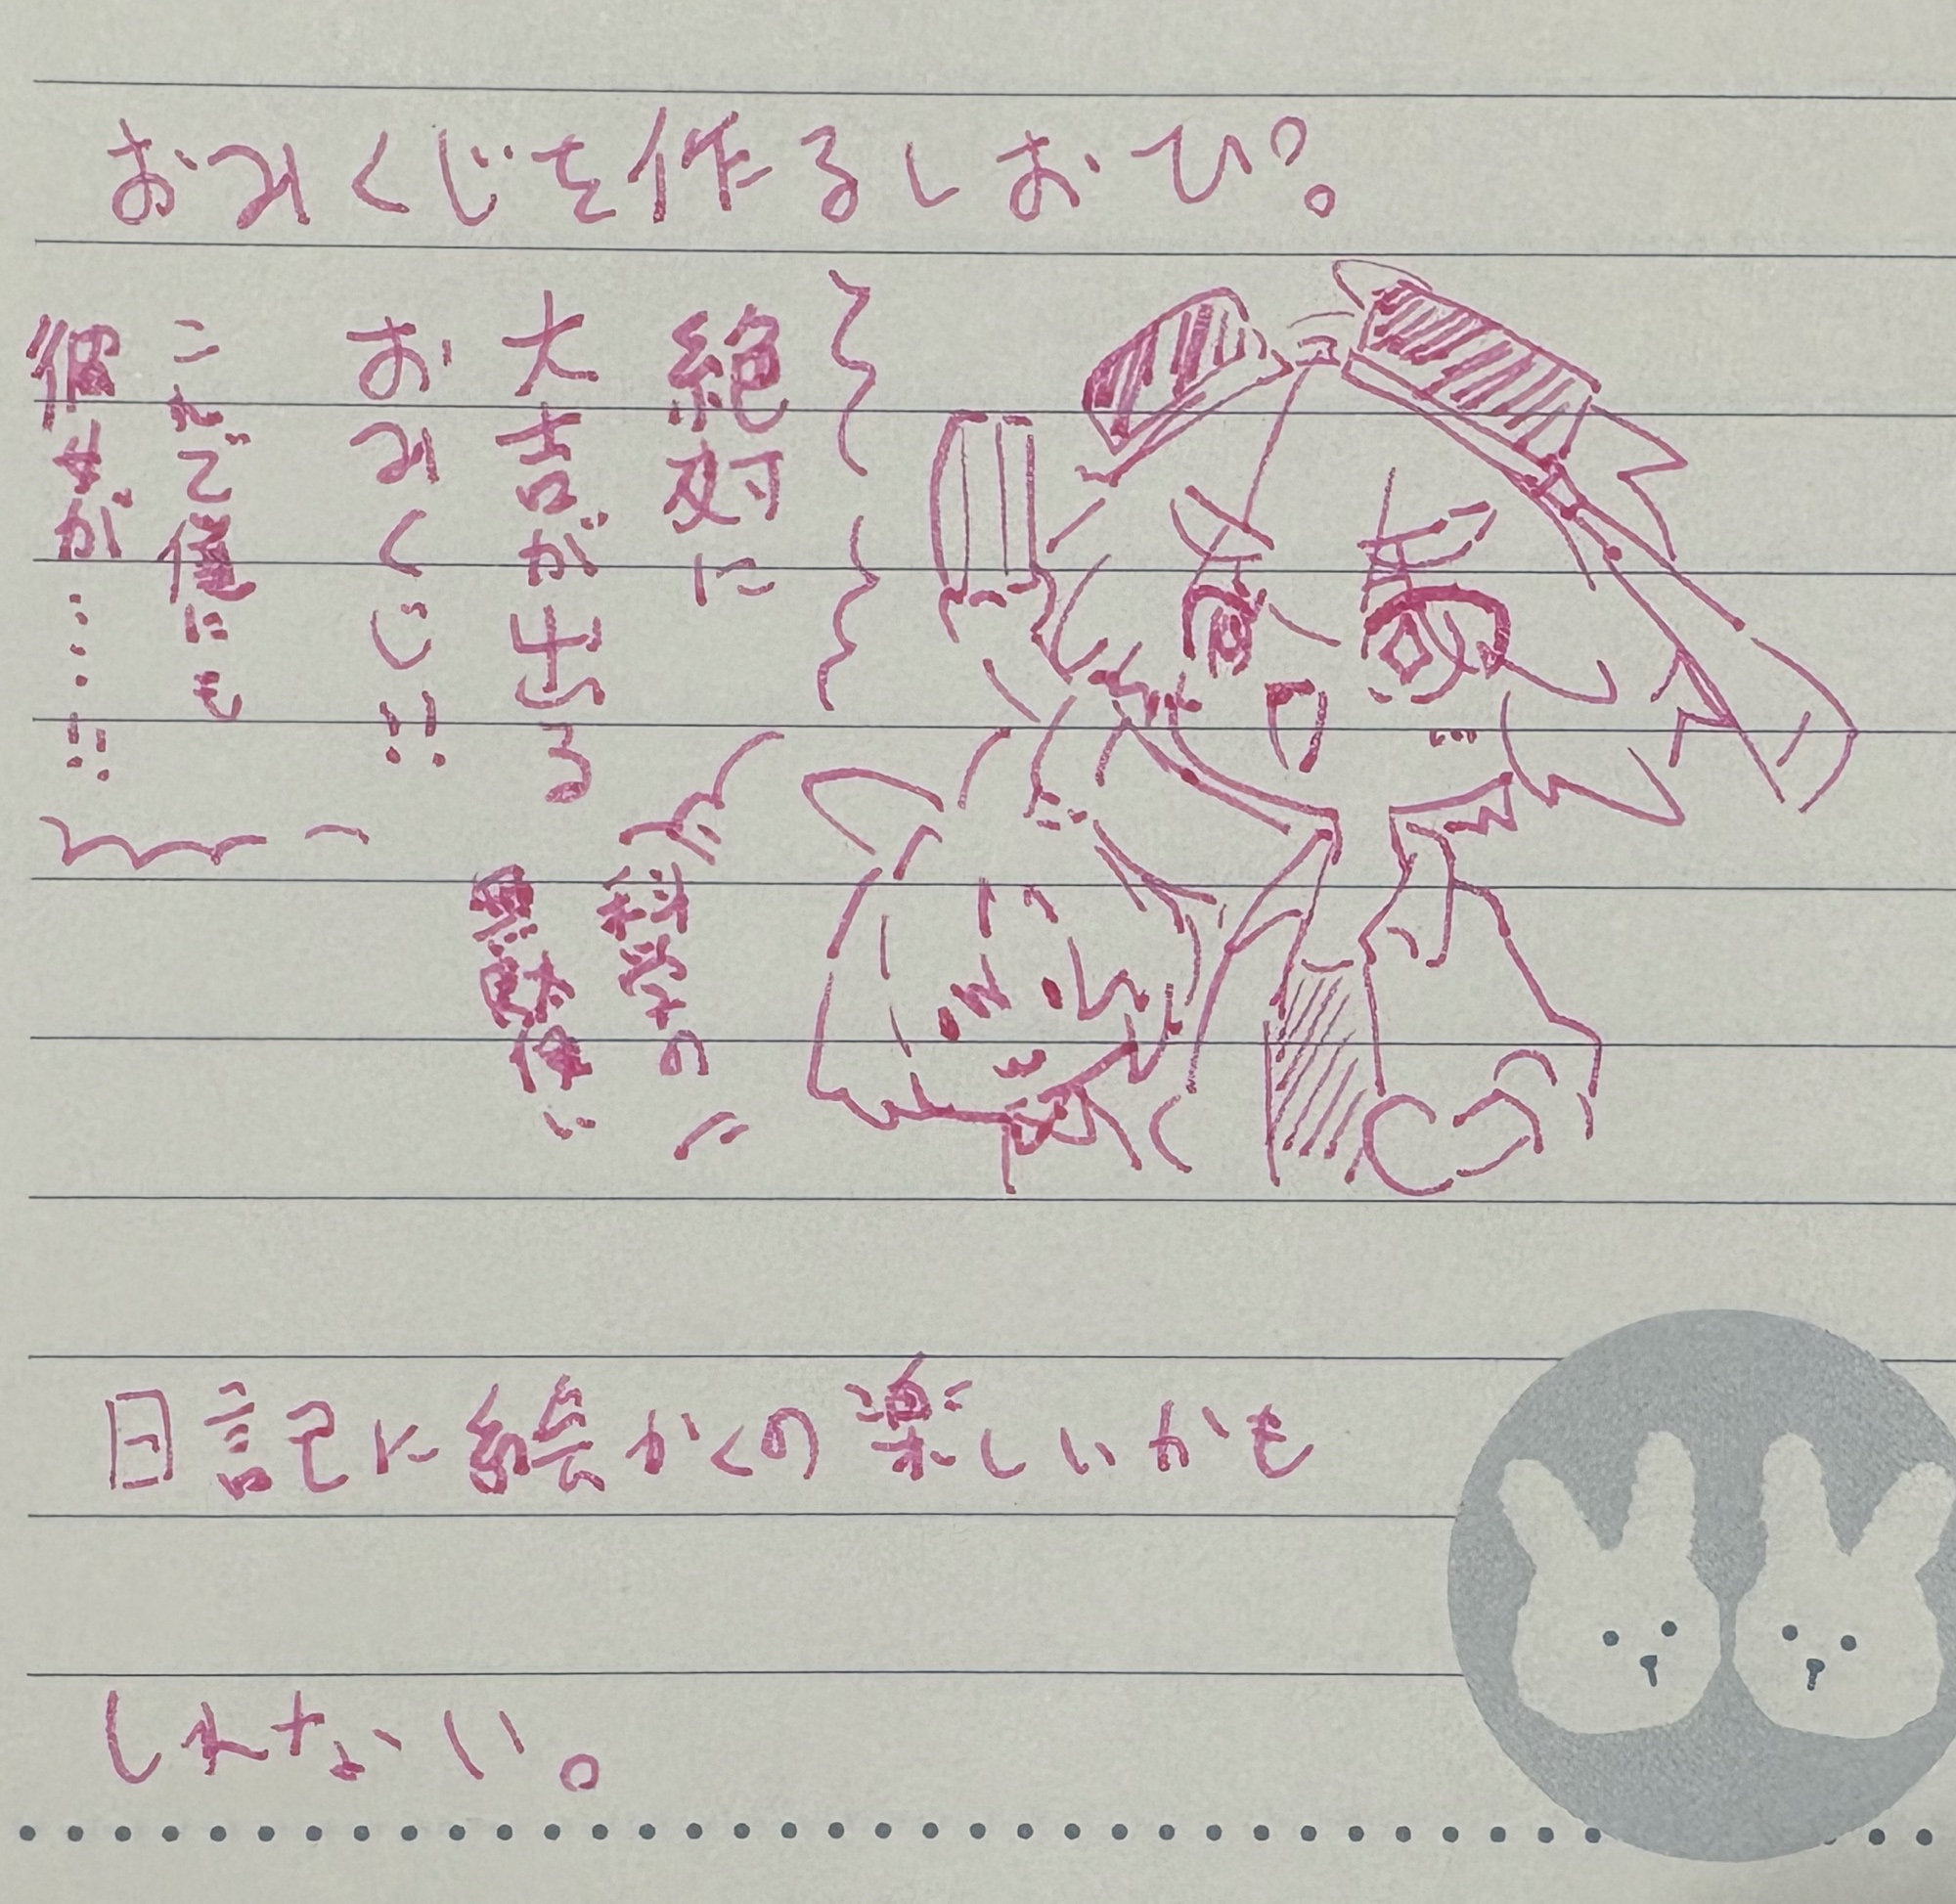 おみくじを作るしおひ?。
絶対に
大吉が出る
おみくじ!!
これで僕にも
彼女が……!!
科学の
無駄使い
日記に絵かくの楽しいかも
しれない。